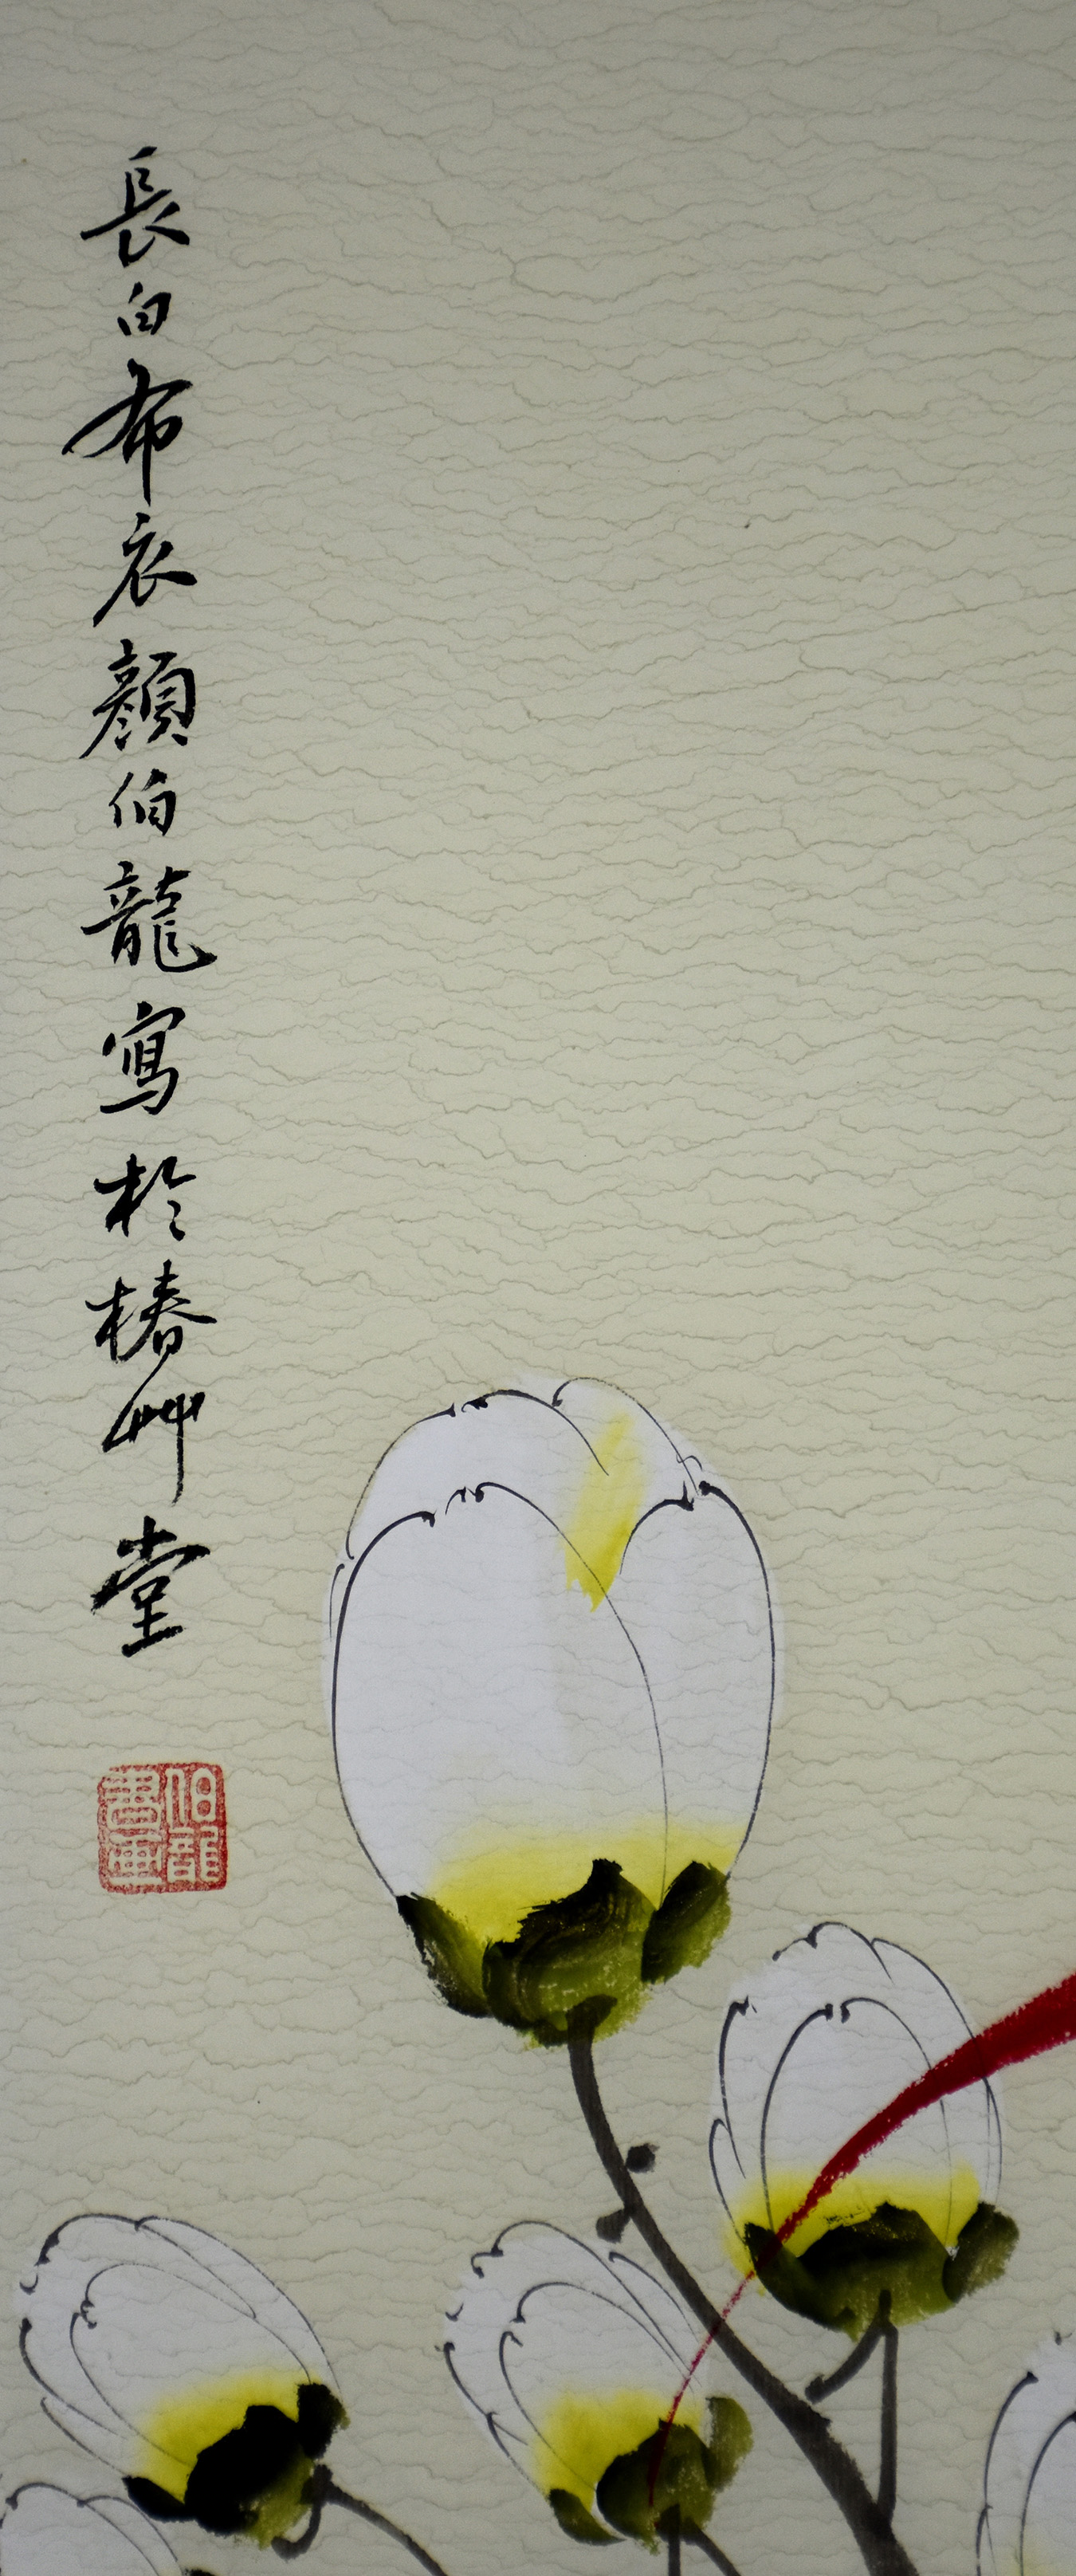 長白布衣顏伯龍寫於椿艸堂
伯龍書畫